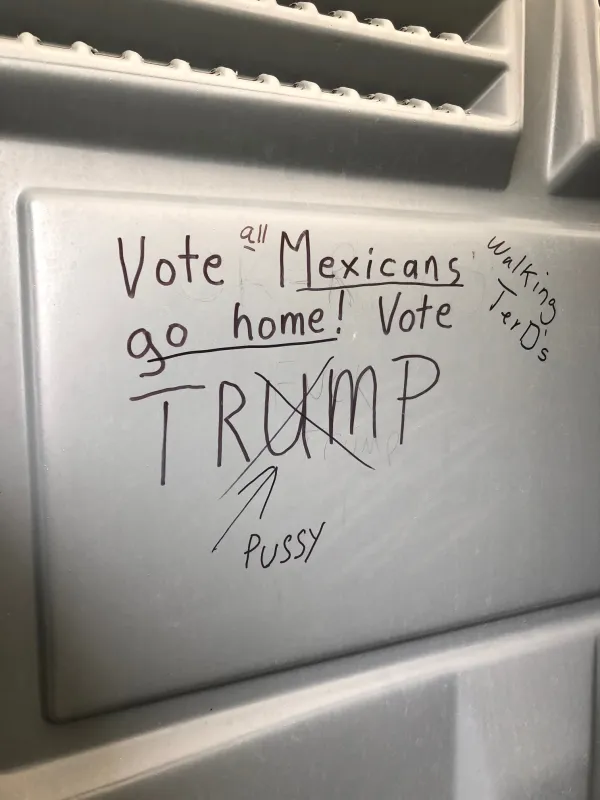 Vote all Mexicans
go home! Vote
TRUMP
PUSSY
Walking
TerD's